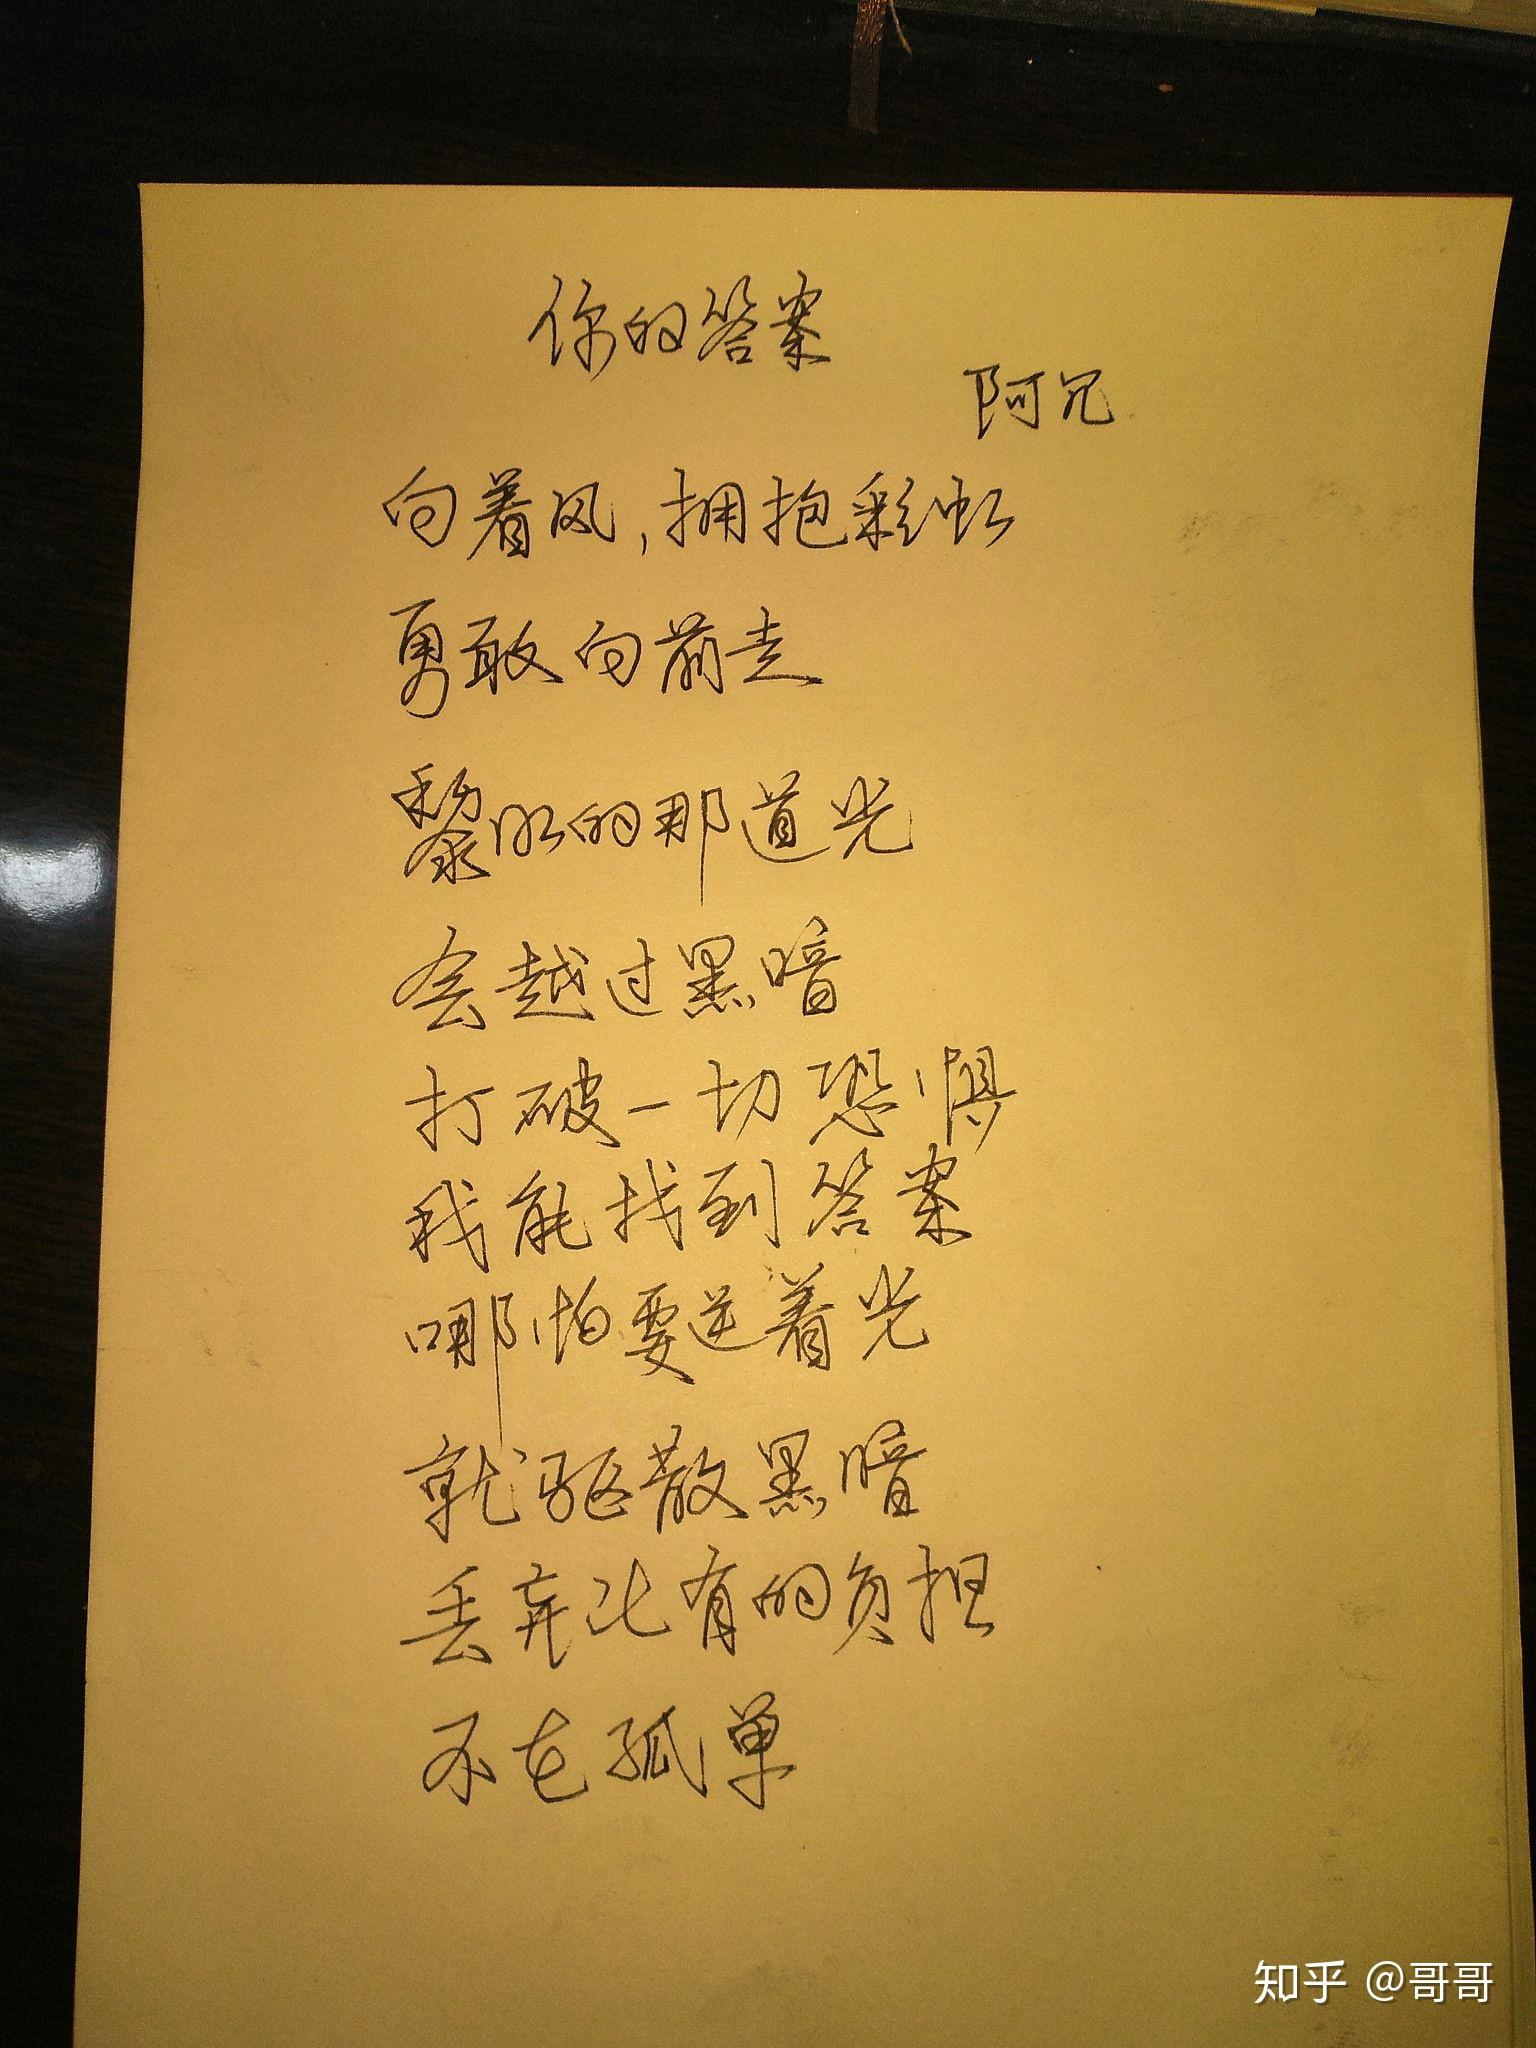 你的答案
阿冗
向着风,拥抱彩虹
勇敢向前走
黎明的那道光
会越过黑暗
打破一切恐惧
我能找到答案
哪怕要逆着光
就驱散黑暗
丢弃所有的负担
不在孤单
知乎 @哥哥